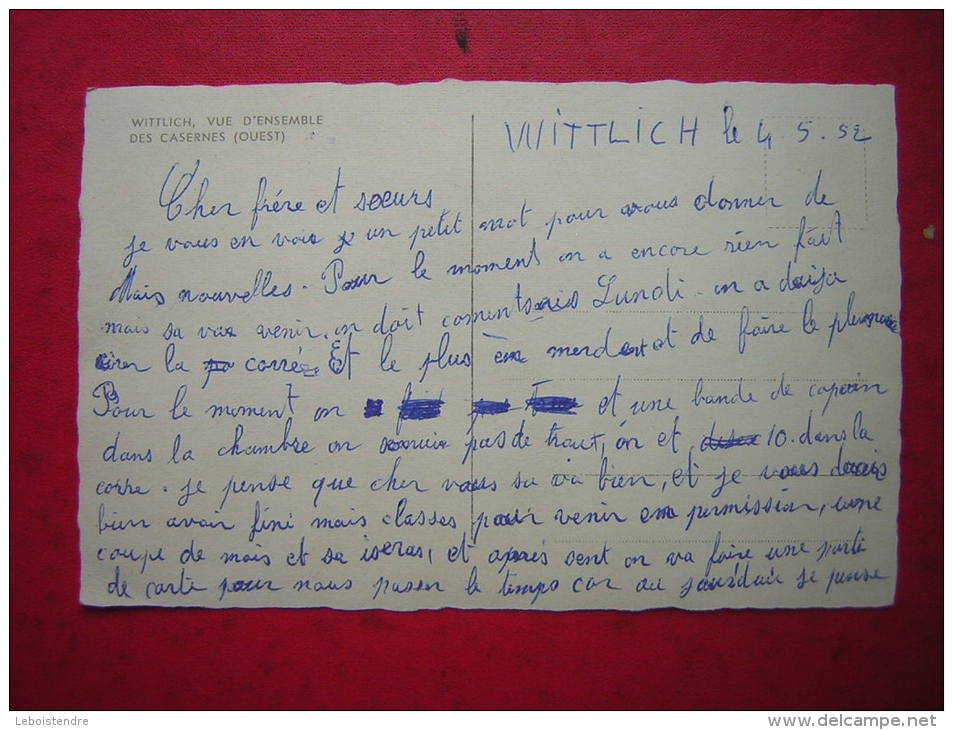 WITTLICH, VUE D'ENSEMBLE
DES CASERNES (OUEST)
WITTLICH le 4 5. 52
Cher frére et soeurs
je vous en voie je un petit mot pour vous donner de
Mais nouvelles. Pour le moment on a encore rien fait
mais sa vas venir, on doit Lundi. on a
la carré. Et le plus merdent et de faire le
Pour le moment on et une bande de copain
dans la chambre on pas de traut, on et 10. dans la
corre. je pense que cher vous sa va bien, et je vous
bien avair fini mais classes pour venir em permission, une
coupe de mois et sa iseras, et aprais sent on va faire une parti
de carte pour nous passer le temps car au je pense
Leboistendre
www.delcampe.net